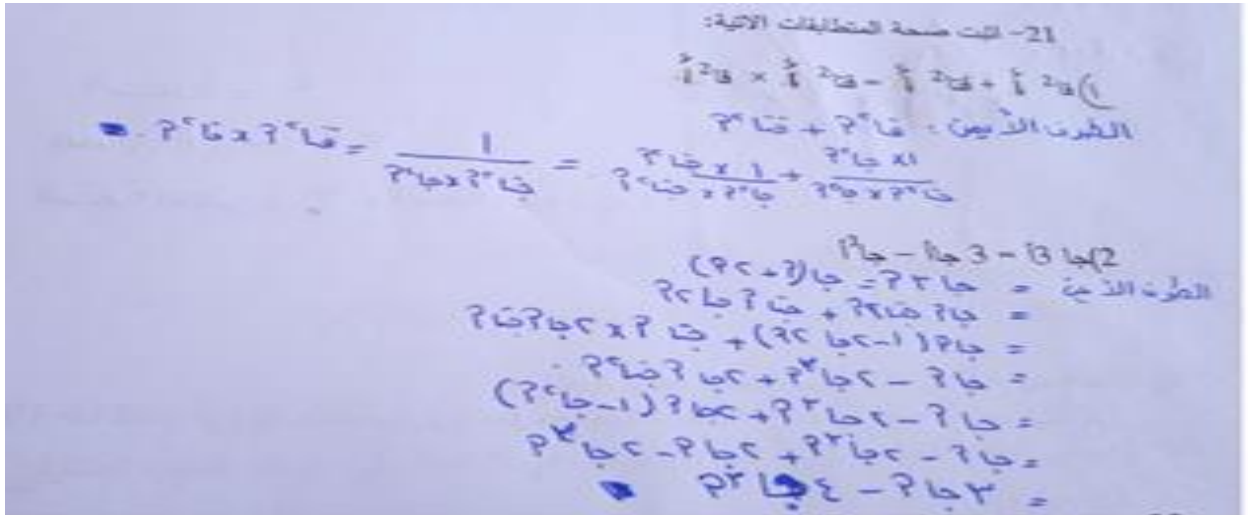 21- اثبت صحة المتطابقات الآتية:
1) قا² أ + قتا² أ = قا² أ × قتا² أ
الطرف الأيمن: قا²؟ + قتا²؟
1×جا²؟ / جتا²؟×جا²؟ + 1×جتا²؟ / جا²؟×جتا²؟ = 1 / جتا²؟×جا²؟ = قتا²؟×قا²؟
2) جا 3أ = 3 جاأ - جا³أ
الطرف الأيمن = جا٣؟ = جا(؟+٢؟)
= جا؟ جتا٢؟ + جتا؟ جا٢؟
= جا؟(١-٢جا²؟) + جتا؟×٢جا؟جتا؟
= جا؟ - ٢جا³؟ + ٢جا؟جتا²؟
= جا؟ - ٢جا³؟ + ٢جا؟(١-جا²؟)
= جا؟ - ٢جا³؟ + ٢جا؟ - ٢جا³؟
= ٣جا؟ - ٤جا³؟